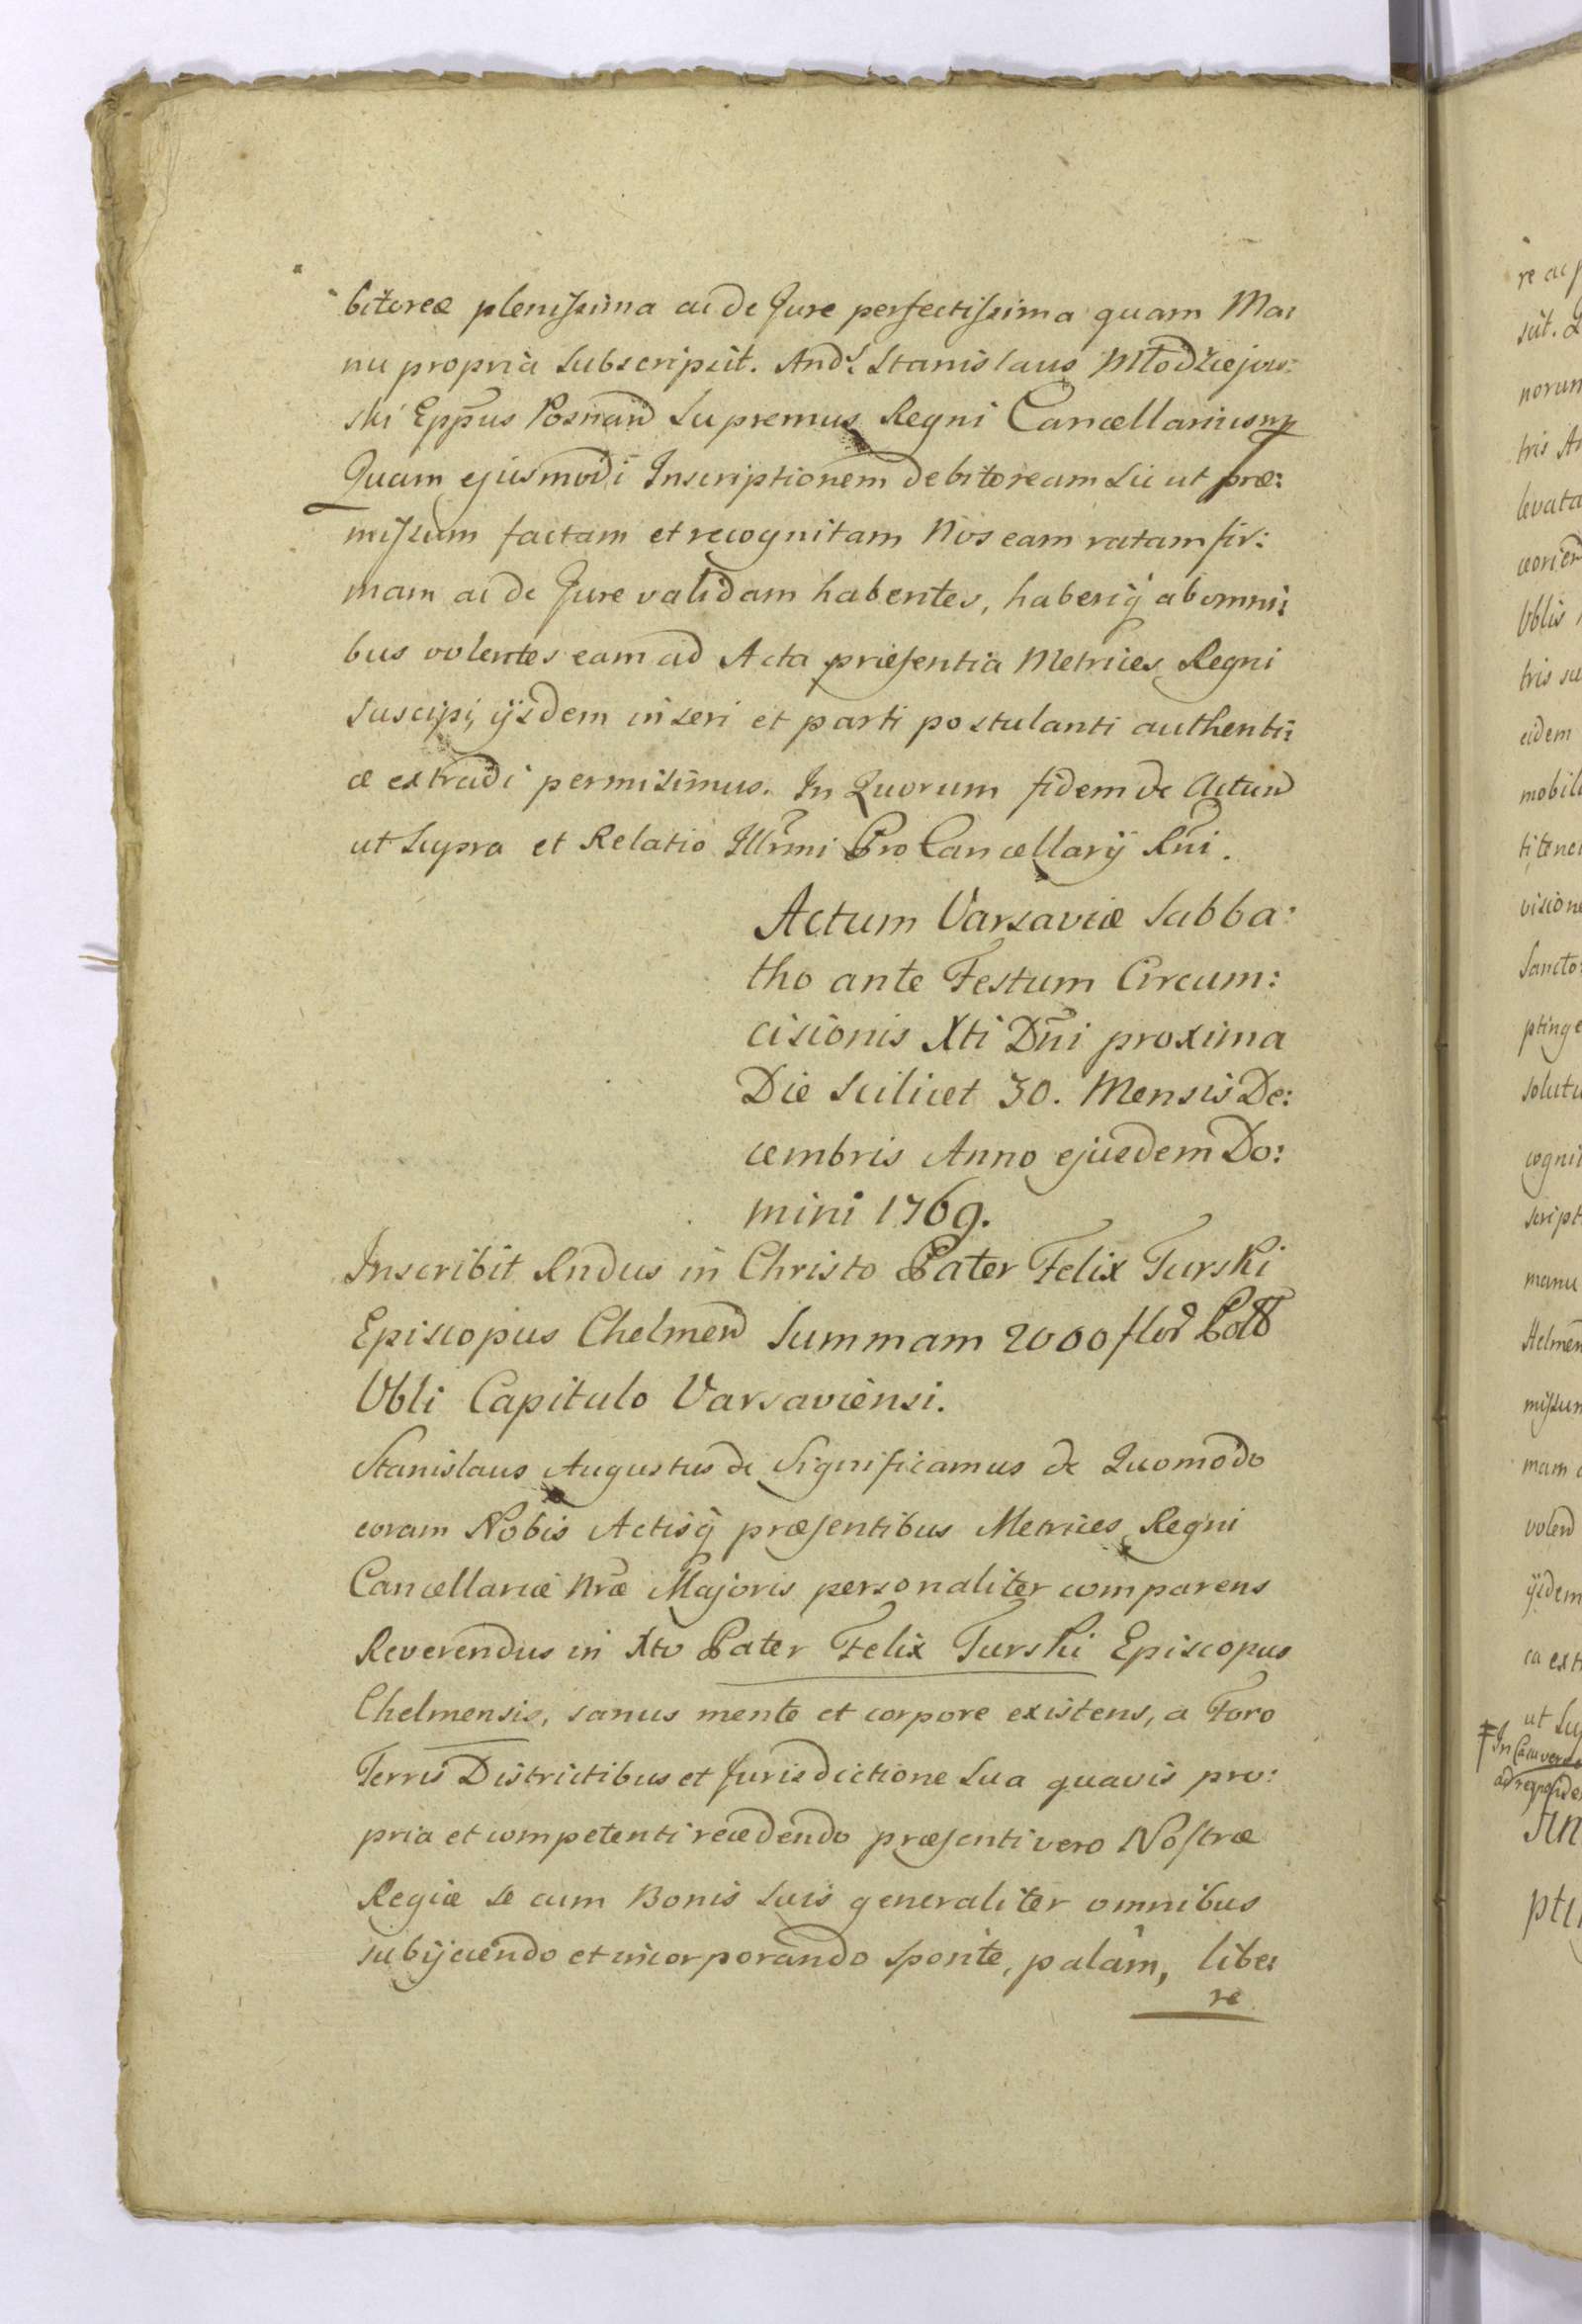 bitoreæ plenissima ac de Jure perfectissima quam Ma:
nu propria subscripsit. And: Stanislaus Młodziejow:
ski Eppus Posnan Supremus Regni Cancellarius mp
Quam ejusmodi Inscriptionem debitoream sic ut præ:
missum factam et recognitam Nos eam ratam fir:
mam ac de Jure validam habentes, haberiq abomni:
bus volentes eam ad Acta præsentia Metrices Regni
suscipi, ijsdem inseri et parti postulanti authenti:
ce extradi permisimus. In Quorum fidem &c Actum
ut Supra et Relatio Illrmi Pro Cancellarij Rni.
Actum Varsaviæ Sabba:
tho ante Festum Circum:
cisionis Xti Dni proxima
Die scilicet 30. Mensis De:
cembris Anno ejusdem Do:
mini 1769.
Inscribit Rndus in Christo Pater Felix Turski
Episcopus Chelmen Summam 2000 flor Poll
Vbli Capitulo Varsaviensi.
Stanislaus Augustus &c Significamus &c Quomodo
coram Nobis Actisq præsentibus Metrices Regni
Cancellariæ Nræ Majoris personaliter comparens
Reverendus in Xto Pater Felix Turski Episcopus
Chelmensis, sanus mente et corpore existens, a Foro
Terris Districtibus et Jurisdictione sua quavis pro:
pria et competenti recedendo præsenti vero Nostræ
Regiæ se cum Bonis suis generaliter omnibus
subijciendo et incorporando sponte, palam, libe:
re